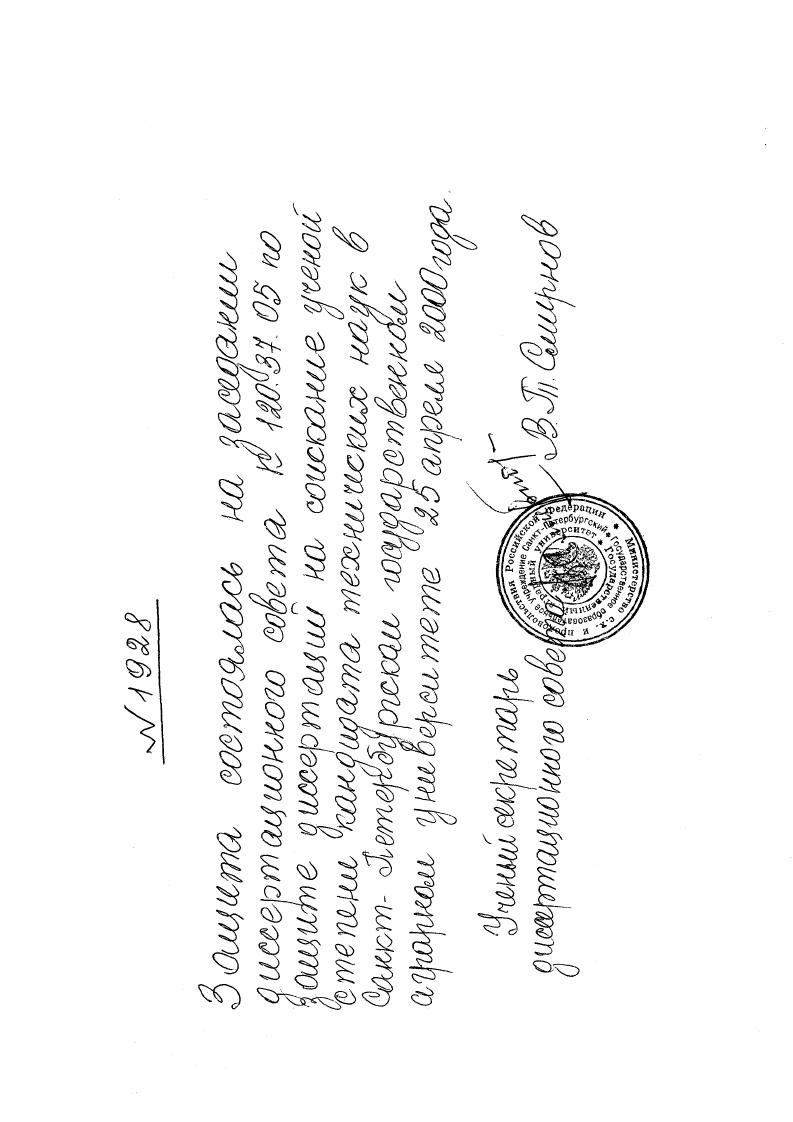 N 1928
Защита состоялась на заседании
диссертационного совета К 120.37.05 по
защите диссертаций на соискание ученой
степени кандидата технических наук в
Санкт-Петербургском государственном
аграрном университете 25 апреля 2000 года.
Ученый секретарь
диссертационного совета В.П. Смирнов
Министерство с.х. и продовольствия Российской Федерации
Государственное образовательное учреждение Санкт-Петербургский
Государственный аграрный университет